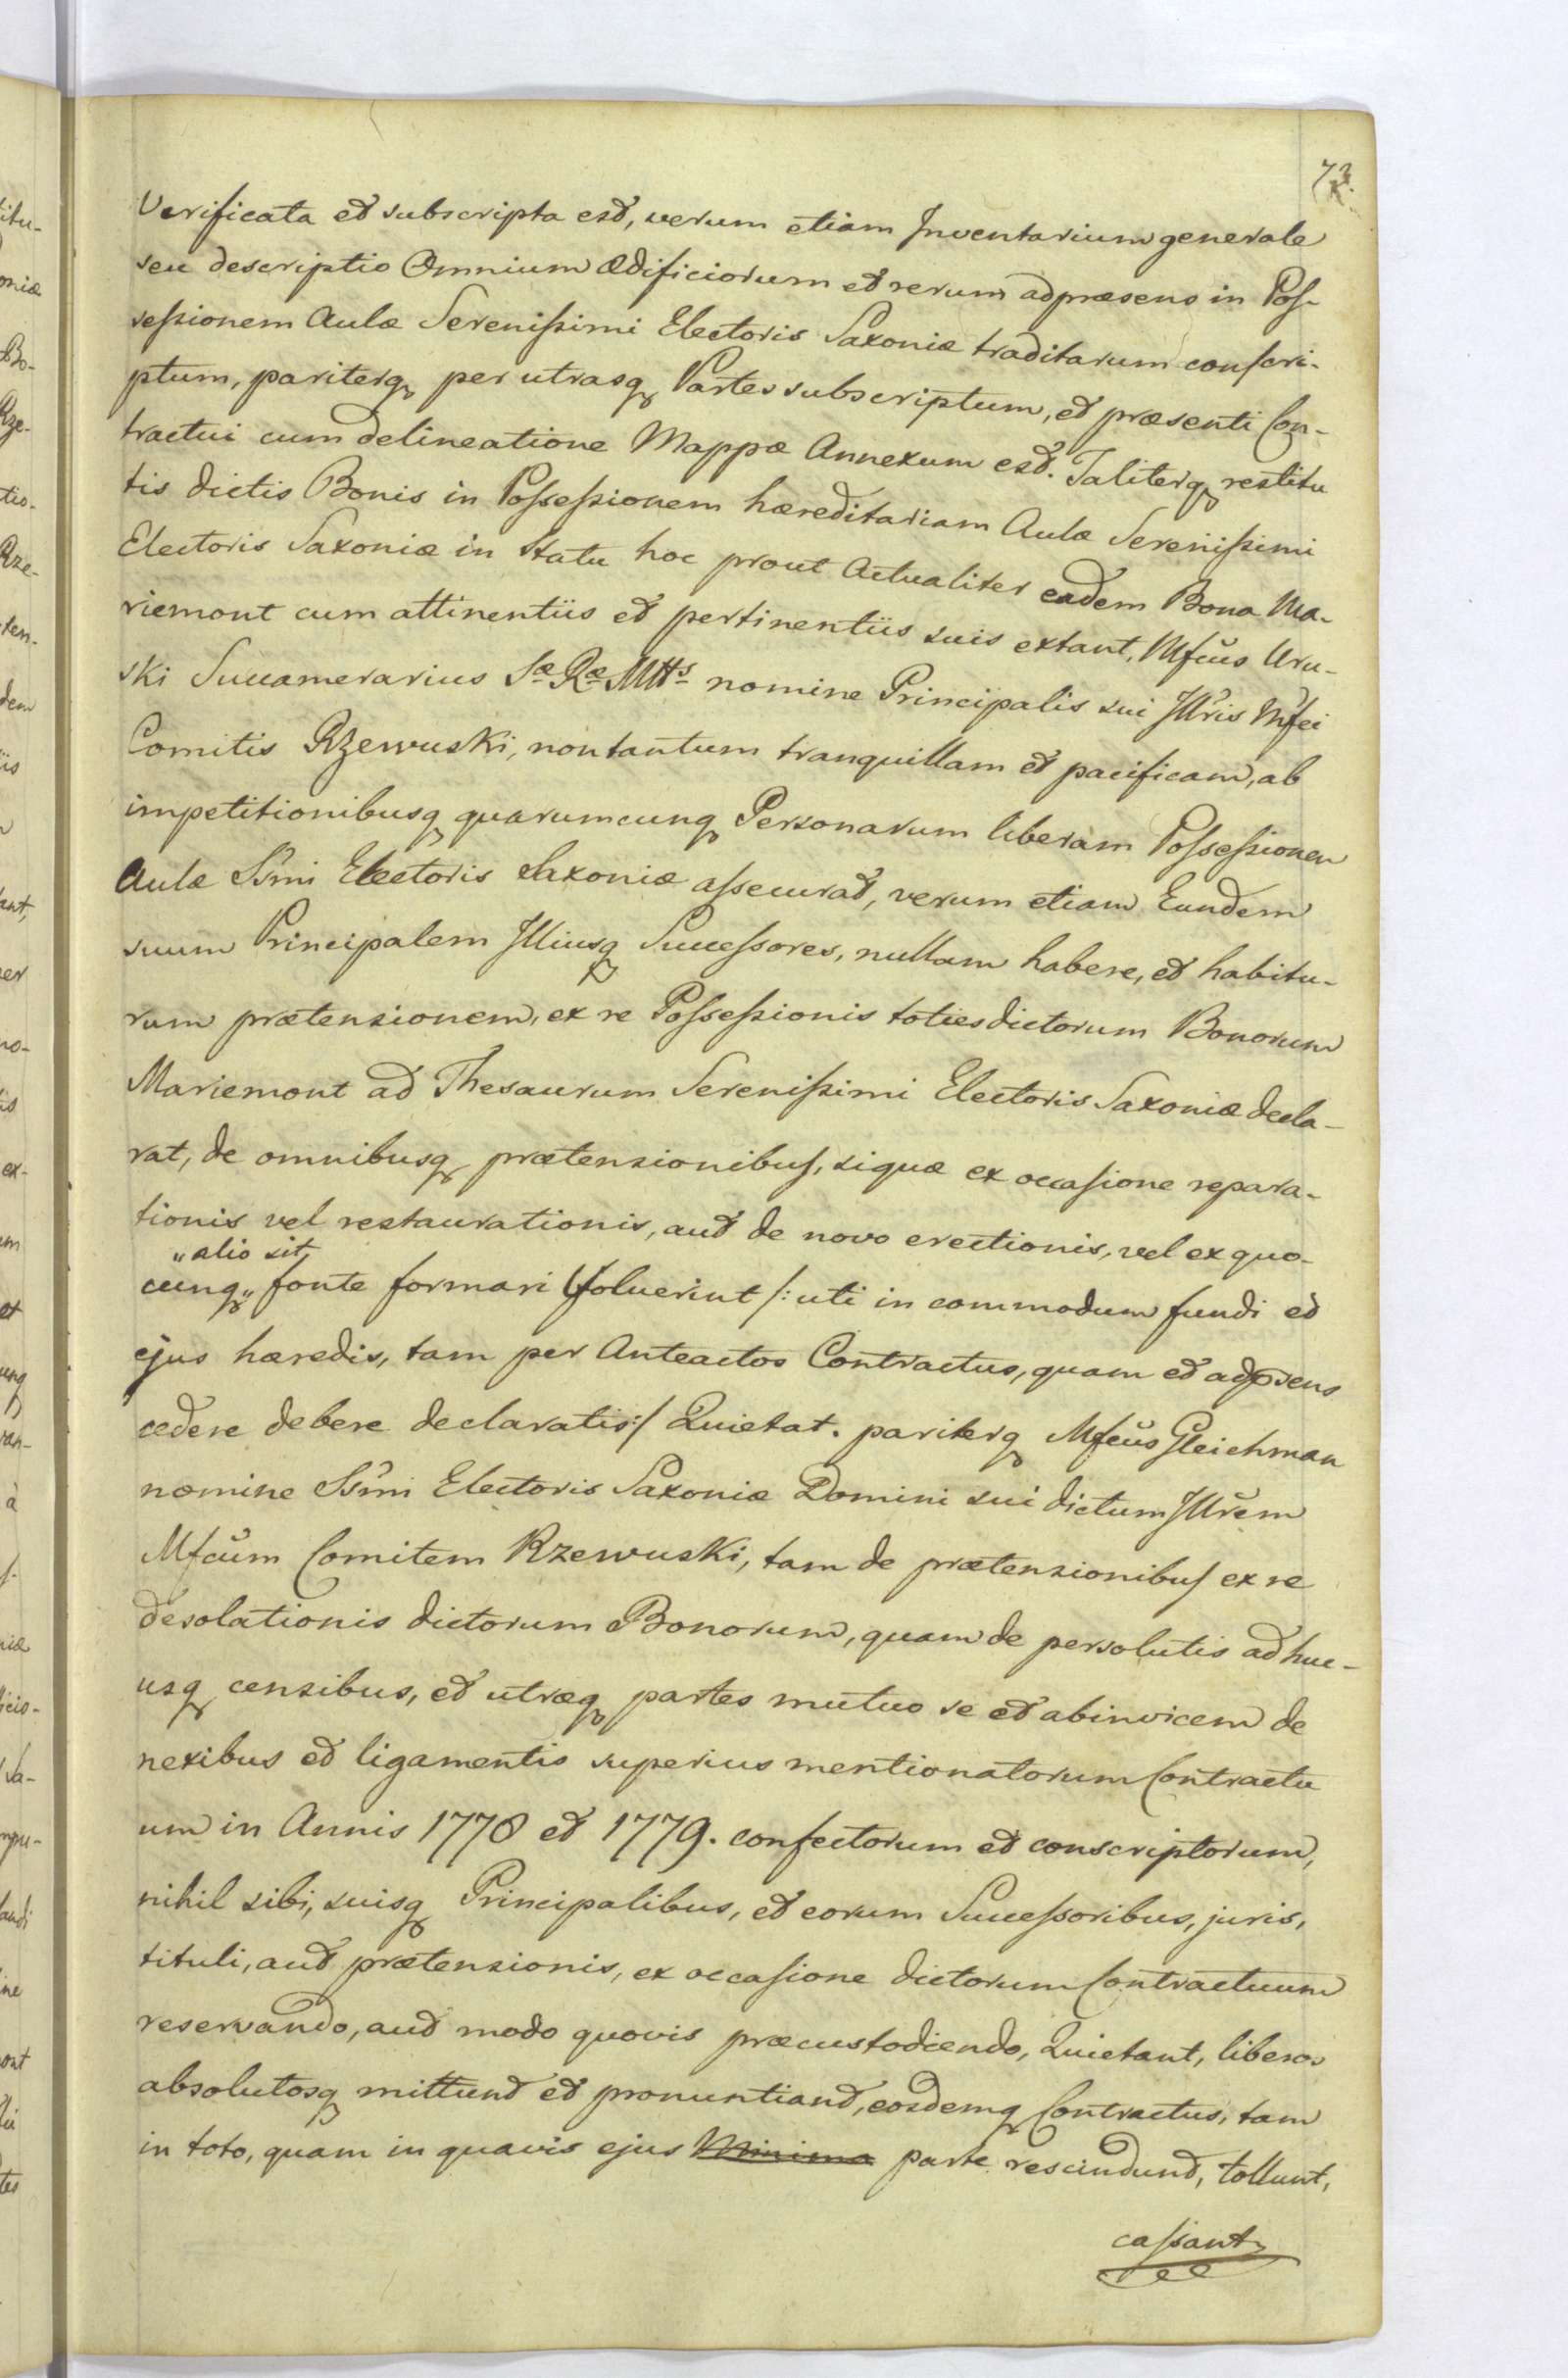 73.
Verificata et subscripta est, verum etiam Inventarium generale
seu descriptio Omnium Ædificiorum et rerum adpræsens in Pos-
sessionem Aulæ Serenissimi Electoris Saxoniæ traditarum conscri-
ptum, pariterq, per utrasq, Partes subscriptum, et præsenti Con-
tractui cum delineatione Mappæ Annexum est. Taliterq, restitu
tis dictis Bonis in Possessionem hæreditariam Aulæ Serenissimi
Electoris Saxoniæ in Statu hoc prout Actualiter eadem Bona Ma-
riemont cum attinentiis et pertinentiis suis extant, Mfcus Uru-
ski Succamerarius Sæ Ræ Mtts nomine Principalis sui Illris Mfci
Comitis Rzewuski, nontantum tranquillam et pacificam, ab
impetitionibusq, quarumcunq, Personarum liberam Possessionem
Aulæ Ssmi Electoris Saxoniæ assecurat, verum etiam Eundem
suum Principalem Illiusq, Successores, nullam habere, et habitu-
rum prætensionem, ex re Possessionis totiesdictorum Bonorum
Mariemont ad Thesaurum Serenissimi Electoris Saxoniæ decla-
rat, de omnibusq, prætensionibus, siquæ ex occasione repara-
tionis vel restaurationis, aut de novo erectionis, vel ex quo-
"alio sit,
cunq," fonte formari foluerint /: uti in commodum fundi et
ejus hæredis, tam per Anteactos Contractus, quam et adpsens
cedere debere declaratis :/ Quietat. pariterq, Mfcus Gleichman
nomine Ssmi Electoris Saxoniæ Domini sui dictum Illrem
Mfcum Comitem Rzewuski, tam de prætensionibus ex re
desolationis dictorum Bonorum, quam de persolutis adhuc-
usq, censibus, et utræq, partes mutuo se et abinvicem de
nexibus et ligamentis superius mentionatorum Contractu
um in Annis 1778 et 1779. confectorum et conscriptorum,
nihil sibi, suisq, Principalibus, et eorum Successoribus, juris,
tituli, aut prætensionis, ex occasione dictorum Contractuum
reservando, aut modo quovis præcustodiendo, Quietant, liberos
absolutosq, mittunt et pronuntiant, eosdemq, Contractus, tam
in toto, quam in quavis ejus Minima parte rescindunt, tollunt,
cassant,